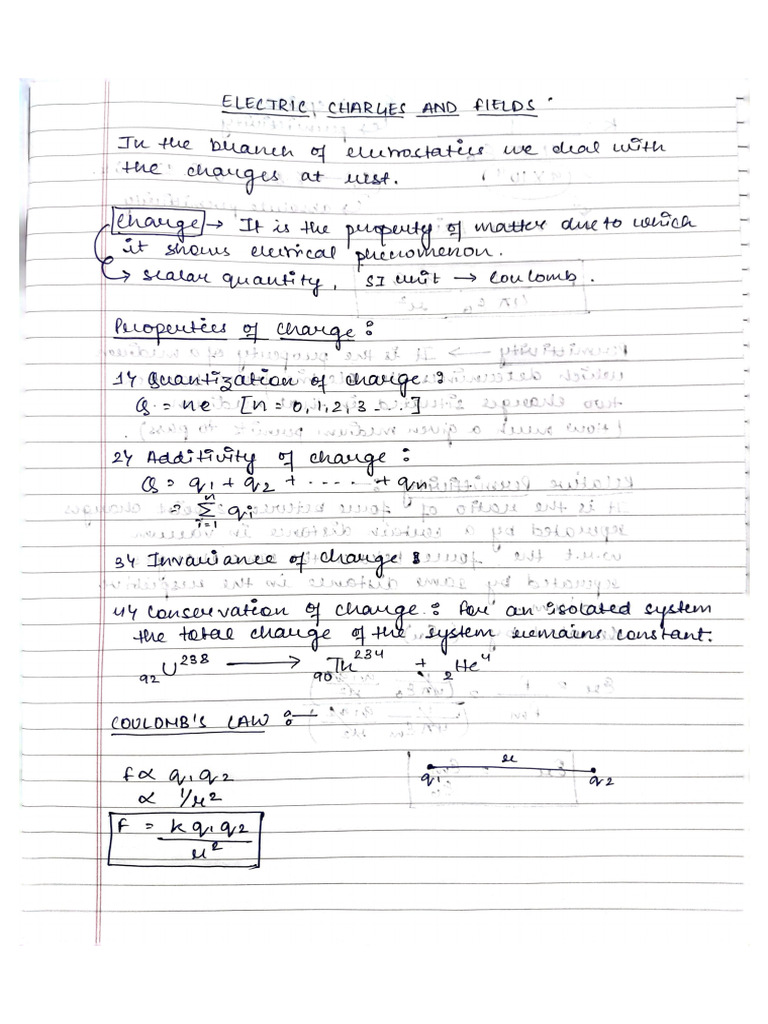 ELECTRIC CHARGES AND FIELDS
In the branch of electrostatics we deal with
the charges at rest.
Charge → It is the property of matter due to which
it shows electrical phenomenon.
→ scalar quantity, SI unit → Coulomb.
Properties of charge :
1) Quantization of charge :
Q = ne [n = 0, 1, 2, 3 ...]
2) Additivity of charge :
Q = q1 + q2 + ..... + qn
= n∑i=1 qi
3) Invariance of charge :
4) Conservation of charge : for an isolated system
the total charge of the system remains constant.
92U238 → 90Th234 + 2He4
COULOMB'S LAW :-
r
F ∝ q1 q2
q1 q2
∝ 1/r2
F = k q1 q2
r2